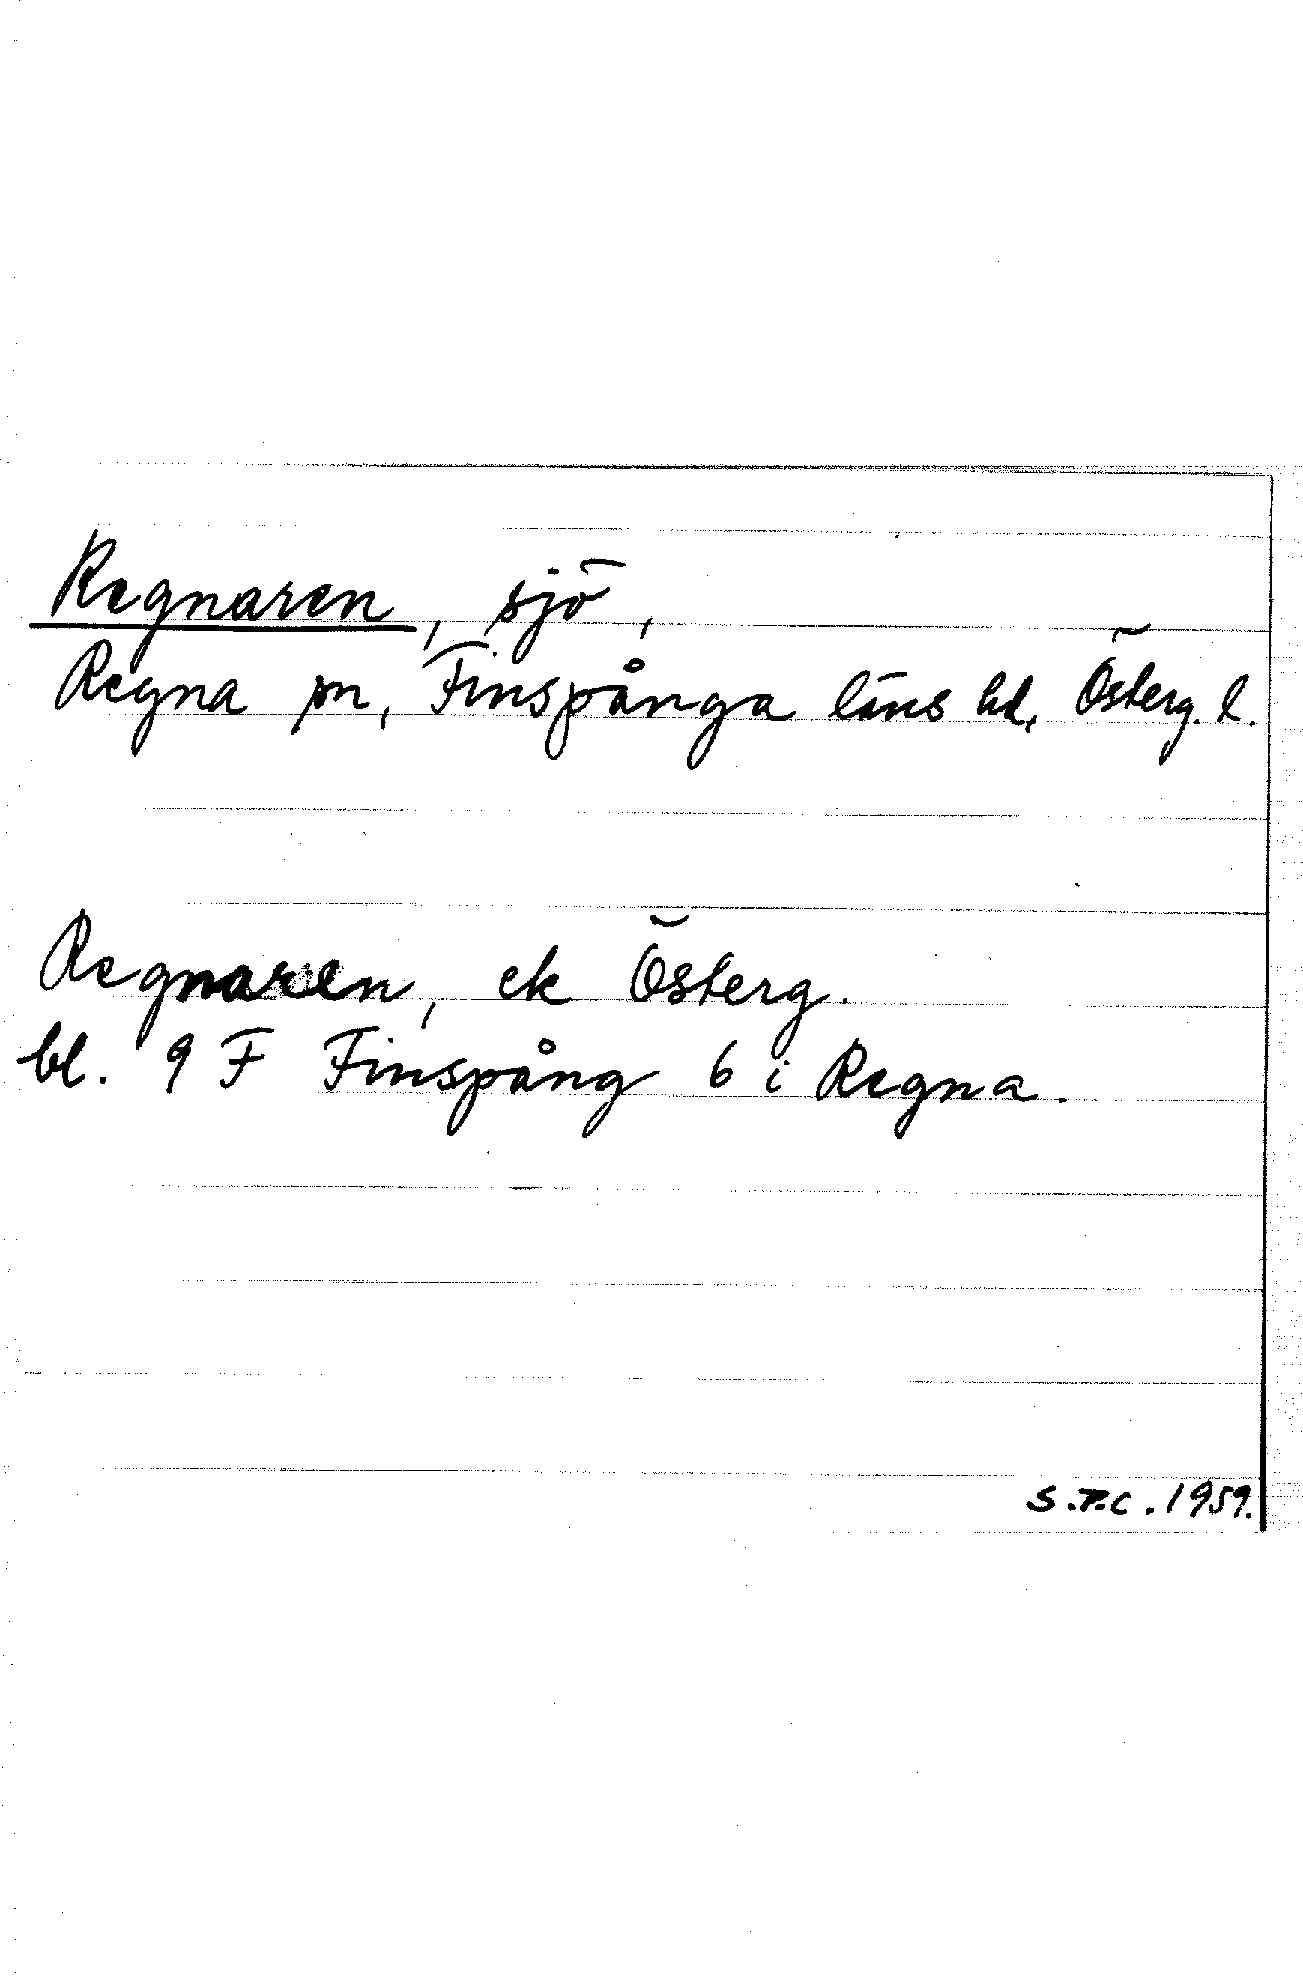 Regnaren, sjö,
Regna sn, Finspånga läns hd, Österg. l.
Regnaren, ek Österg.
bl. 9 F Finspång 6 i Regna.
S.P.C. 1959.